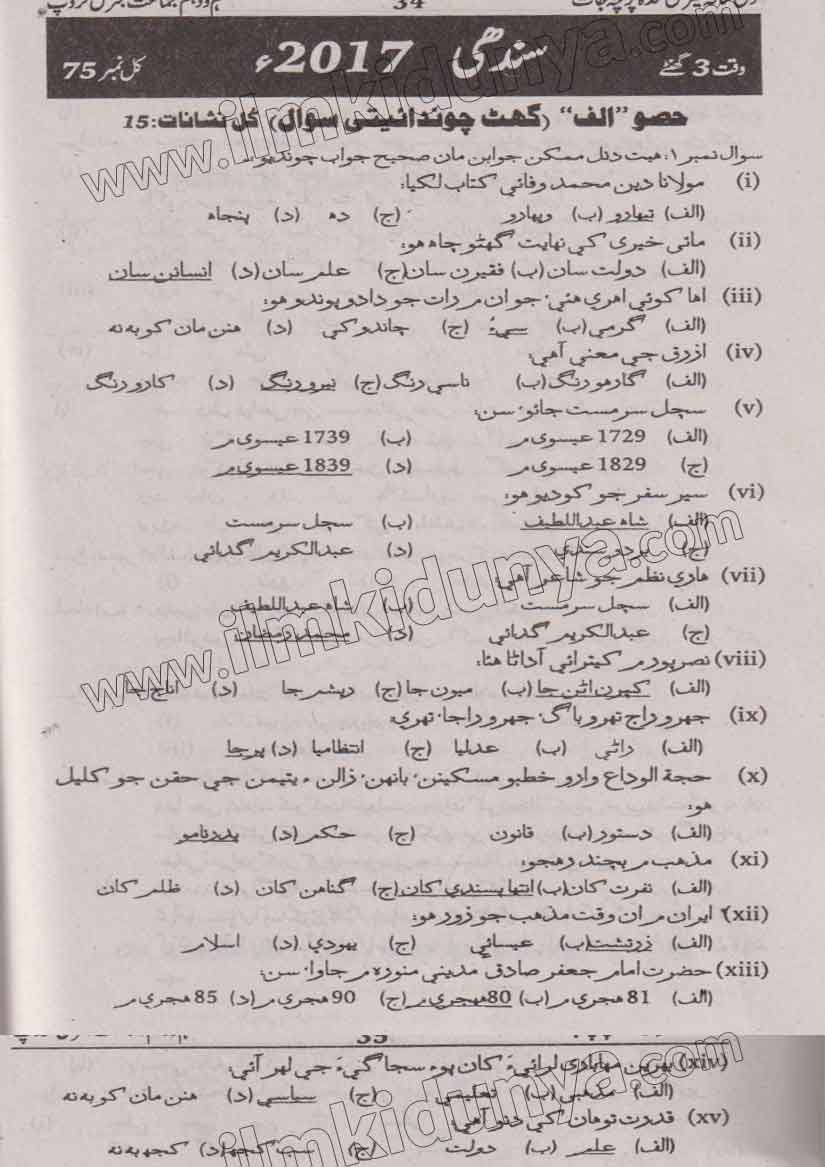 34
وقت 3 گھنٹے سنڌي 2017ء کل نمبر 75
حصو ”الف“ (گهٽ چونڊائيتي سوال) کُل نشانات: 15
سوال نمبر ۱: هيٺ ڏنل ممڪن جوابن مان صحيح جواب چونڊيو:
(i) مولانا دين محمد وفائي ڪتاب لکيا:
(الف) ٽيهارو (ب) ويهارو (ج) ده (د) پنجاه
(ii) مائي خيري کي نهايت گهڻو چاه هو:
(الف) دولت سان (ب) فقيرن سان (ج) علم سان (د) انسانن سان
(iii) اها ڪوئي اهڙي هئي، جو ان ۾ رات جو دادو پوندو هو:
(الف) گرمي (ب) سيءُ (ج) چاندوکي (د) هنن مان ڪو به نه
(iv) ازرق جي معنيٰ آهي:
(الف) ڳاڙهو رنگ (ب) ناسي رنگ (ج) نيرو رنگ (د) ڪارو رنگ
(v) سچل سرمست ڄائو، سن:
(الف) 1729 عيسوي ۾ (ب) 1739 عيسوي ۾
(ج) 1829 عيسوي ۾ (د) 1839 عيسوي ۾
(vi) سير سفر جو ڪوڏيو هو:
(الف) شاه عبداللطيف (ب) سچل سرمست
(ج) بردو سنڌي (د) عبدالڪريم گدائي
(vii) هاري نظم جو شاعر آهي:
(الف) سچل سرمست (ب) شاه عبداللطيف
(ج) عبدالڪريم گدائي (د) محمد رمضان
(viii) نصرپور ۾ ڪيترائي آڏاڻا هئا:
(الف) کيرن اٽڻ جا (ب) ميون جا (ج) ريشم جا (د) اناج جا
(ix) جهڙو راڄ تهڙو ڀاڳ، جهڙو راجا، تهڙي:
(الف) راڻي (ب) عدليا (ج) انتظاميا (د) پرجا
(x) حجة الوداع وارو خطبو مسڪينن، ٻانهن، زالن ۽ يتيمن جي حقن جو کليل
هو:
(الف) دستور (ب) قانون (ج) حڪم (د) پڌرنامو
(xi) مذهب ۾ بچندا رهجو:
(الف) نفرت کان (ب) انتها پسندي کان (ج) گناهن کان (د) ظلم کان
(xii) ايران ۾ ان وقت مذهب جو زور هو:
(الف) زرتشت (ب) عيسائي (ج) يهودي (د) اسلام
(xiii) حضرت امام جعفر صادق مديني منوره ۾ ڄاوا، سن:
(الف) 81 هجري ۾ (ب) 80 هجري ۾ (ج) 90 هجري ۾ (د) 85 هجري ۾
35
(xiv) ٻهرين مهاڀاري لڙائيءَ کان پوءِ سڄاڳيءَ جي لهر آئي:
(الف) مذهبي (ب) تعليمي (ج) سياسي (د) هنن مان ڪو به نه
(xv) قدرت توهان کي ڏنو آهي:
(الف) علم (ب) دولت (ج) سڀ ڪجهه (د) ڪجهه به نه
www.ilmkidunya.com
www.ilmkidunya.com
www.ilmkidunya.com
www.ilmkidunya.com